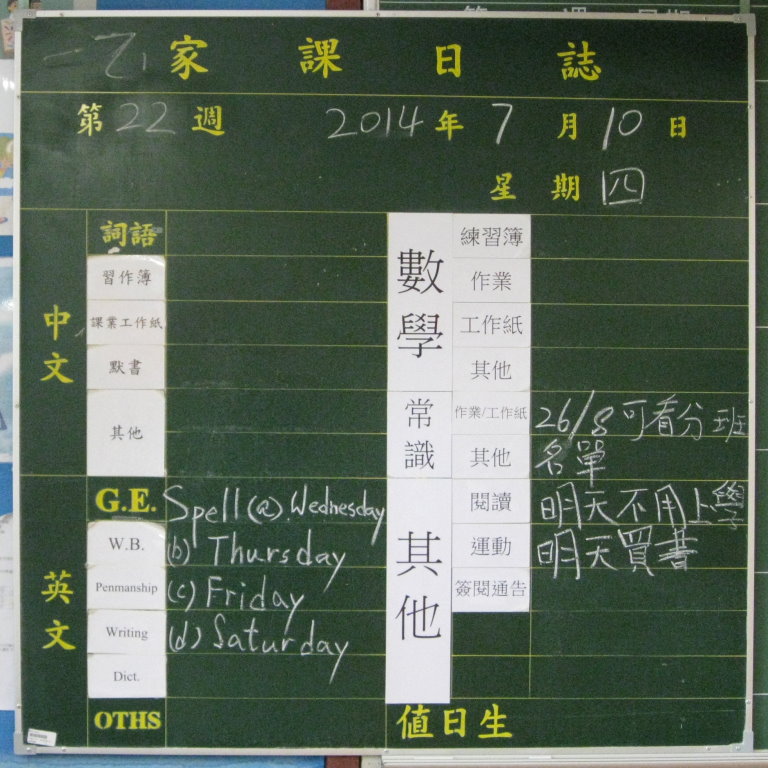 一乙 家課日誌
第22週 2014年7月10日
星期四
中文
詞語
習作簿
課業工作紙
默書
其他
英文
G.E. Spell (a). Wednesday
W.B. (b) Thursday
Penmanship (c) Friday
Writing (d) Saturday
Dict.
OTHS
數學
練習簿
作業
工作紙
其他
常識
作業/工作紙 26/8可看分班
其他 名單
其他
閱讀 明天不用上學
運動 明天買書
簽閱通告
值日生